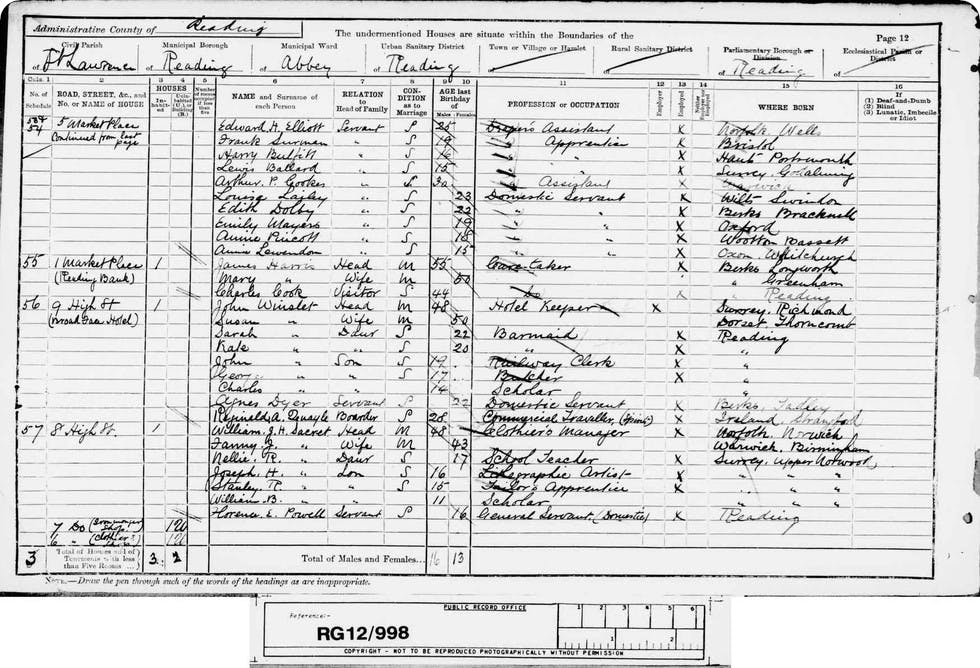 Administrative County of Reading
The undermentioned Houses are situate within the Boundaries of the
Page 12
Civil Parish Municipal Borough Municipal Ward Urban Sanitary District Town or Village or Hamlet Rural Sanitary District Parliamentary Borough or Division Ecclesiastical Parish or District
of St Lawrence of Reading of Abbey of Reading of of of Reading of
Cols. 1 2 3 4 5 6 7 8 9 10 11 12 13 14 15 16
No. of Schedule ROAD, STREET, &c., and No. or NAME of HOUSE HOUSES Inhabited Uninhabited (U.), or Building (B.) Number of rooms occupied if less than five NAME and Surname of each Person RELATION to Head of Family CONDITION as to Marriage AGE last Birthday of Males Females PROFESSION or OCCUPATION Employer Employed Neither Employer nor Employed WHERE BORN If (1) Deaf-and-Dumb (2) Blind (3) Lunatic, Imbecile or Idiot
54 5 Market Place Edward H. Elliott Servant S 25 Draper's Assistant X Norfolk Wells
Continued from last page Frank Surman " S 19 " Apprentice X Bristol
Harry Bulfitt " S 16 " " X Hants Portsmouth
Lewis Ballard " S 15 " " X Surrey Godalming
Arthur P. Cookes " S 30 " Assistant X Warwick
Louisa Lailey " S 23 Domestic Servant X Wilts Swindon
Edith Dolby " S 22 " " X Berks Bracknell
Emily Mayers " S 19 " " X Oxford
Annie Pincott " S 18 " " X Wootton Bassett
Annie Lewendon " S 15 " " X Oxon Whitchurch
55 1 Market Place 1 James Harris Head M 55 Care-taker X Berks Longworth
(Reading Bank) Mary " Wife M 50 " Greenham
Charles Cook Visitor S 44 X " Reading
56 9 High St 1 John Winslet Head M 48 Hotel Keeper X Surrey, Richmond
(Broad Face Hotel) Susan " Wife M 50 Dorset, Thorncomb
Sarah " Daur S 22 Barmaid X Reading
Kate " " S 20 " X "
John " Son S 19 Railway Clerk X "
George " " S 17 Butcher X "
Charles " " 14 Scholar "
Agnes Dyer Servant S 22 Domestic Servant X Berks, Tadley
Reginald A. Quayle Boarder S 28 Commercial Traveller, (Spirits) X Ireland
57 8 High St. 1 William J. H. Sacret Head M 48 Clothier's Manager X Norfolk, Norwich
Fanny J. " Wife M 43 Warwick, Birmingham
Nellie R. " Daur S 17 School Teacher X Surrey, Upper Norwood
Joseph H. " Son S 16 Lithographic Artist X " " "
Stanley R " " S 15 Tailor's Apprentice X " " "
William B. " " 11 Scholar " " "
Florence E. Powell Servant S 16 General Servant, (Domestic) X Reading
7 Do (Ironmonger's Shop) 1 U
6 " (Clothier's Shop) 1 U
3 Total of Houses and of Tenements with less than Five Rooms 3 2 Total of Males and Females... 16 13
NOTE.—Draw the pen through such of the words of the headings as are inappropriate.
PUBLIC RECORD OFFICE
Reference:-
RG12/998
1 2 3 4 5 6
1 2
COPYRIGHT - NOT TO BE REPRODUCED PHOTOGRAPHICALLY WITHOUT PERMISSION